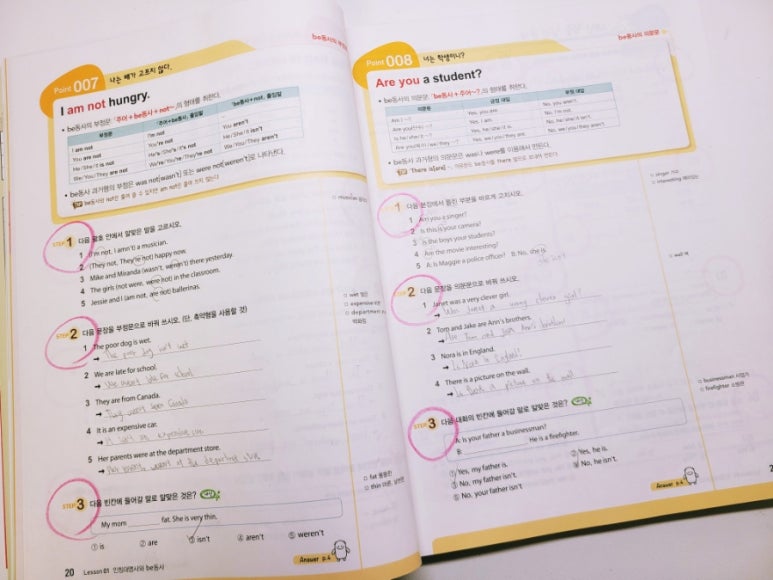 Point 007 나는 배가 고프지 않다.
be동사의 부정문
I am not hungry.
• be동사의 부정문: 「주어+be동사+not~」의 형태를 취한다.
부정문 「주어+be동사」 줄임말 「be동사+not」 줄임말
I am not I'm not
You are not You're not You aren't
He/She/It is not He's/She's/It's not He/She/It isn't
We/You/They are not We're/You're/They're not We/You/They aren't
• be동사 과거형의 부정은 was not[wasn't] 또는 were not[weren't]로 나타낸다.
TIP be동사와 not은 줄여 쓸 수 있지만 am not은 줄여 쓰지 않는다
STEP 1 다음 괄호 안에서 알맞은 말을 고르시오.
1 (I'm not, I amn't) a musician.
2 (They not, They're not) happy now.
3 Mike and Miranda (wasn't, weren't) there yesterday.
4 The girls (not were, were not) in the classroom.
5 Jessie and I (am not, are not) ballerinas.
musician
STEP 2 다음 문장을 부정문으로 바꿔 쓰시오. (단, 축약형을 사용할 것)
1 The poor dog is wet.
→ The poor dog isn't wet
2 We are late for school.
→ We aren't late for school
3 They are from Canada.
→ They aren't from Canada
4 It is an expensive car.
→ It isn't an expensive car
5 Her parents were at the department store.
→ Her parents weren't at the department store
wet 젖은
expensive
department
백화점
STEP 3 다음 빈칸에 들어갈 말로 알맞은 것은?
My mom ______ fat. She is very thin.
① is ② are ③ isn't ④ aren't ⑤ weren't
fat 뚱뚱한
thin 마른, 날씬한
Answer p.4
20 Lesson 01 인칭대명사와 be동사
Point 008 너는 학생이니?
be동사의 의문문
Are you a student?
• be동사의 의문문: 「be동사+주어~?」의 형태를 취한다.
의문문 긍정 대답 부정 대답
Am I ~? Yes, you are. No, you aren't.
Are you(단수) ~? Yes, I am. No, I'm not.
Is he/she/it ~? Yes, he/she/it is. No, he/she/it isn't.
Are you(복수)/we/they ~? No, we/you/they aren't.
• be동사 과거형의 의문문은 was나 were를 이용해서 만든다.
TIP There is[are] ~.
STEP 1 다음 문장에서 틀린 부분을 바르게 고치시오.
1 Am you a singer?
2 Is this is your camera?
3 Is the boys your students?
4 Are the movie interesting?
5 A: Is Maggie a police officer? B: No, she is.
singer 가수
interesting 재미있는
STEP 2 다음 문장을 의문문으로 바꿔 쓰시오.
1 Janet was a very clever girl.
→ Was Janet a very clever girl?
2 Tom and Jake are Ann's brothers.
→ Are Tom and Jake Ann's brothers?
3 Nora is in England.
→ Is Nora in England?
4 There is a picture on the wall.
→ Is there a picture on the wall?
wall 벽
STEP 3 다음 대화의 빈칸에 들어갈 말로 알맞은 것은?
A: Is your father a businessman?
B: ______ He is a firefighter.
① Yes, my father is. ② Yes, he is.
③ No, my father isn't. ④ No, he isn't.
⑤ No, your father isn't.
businessman 사업가
firefighter 소방관
Answer p.4